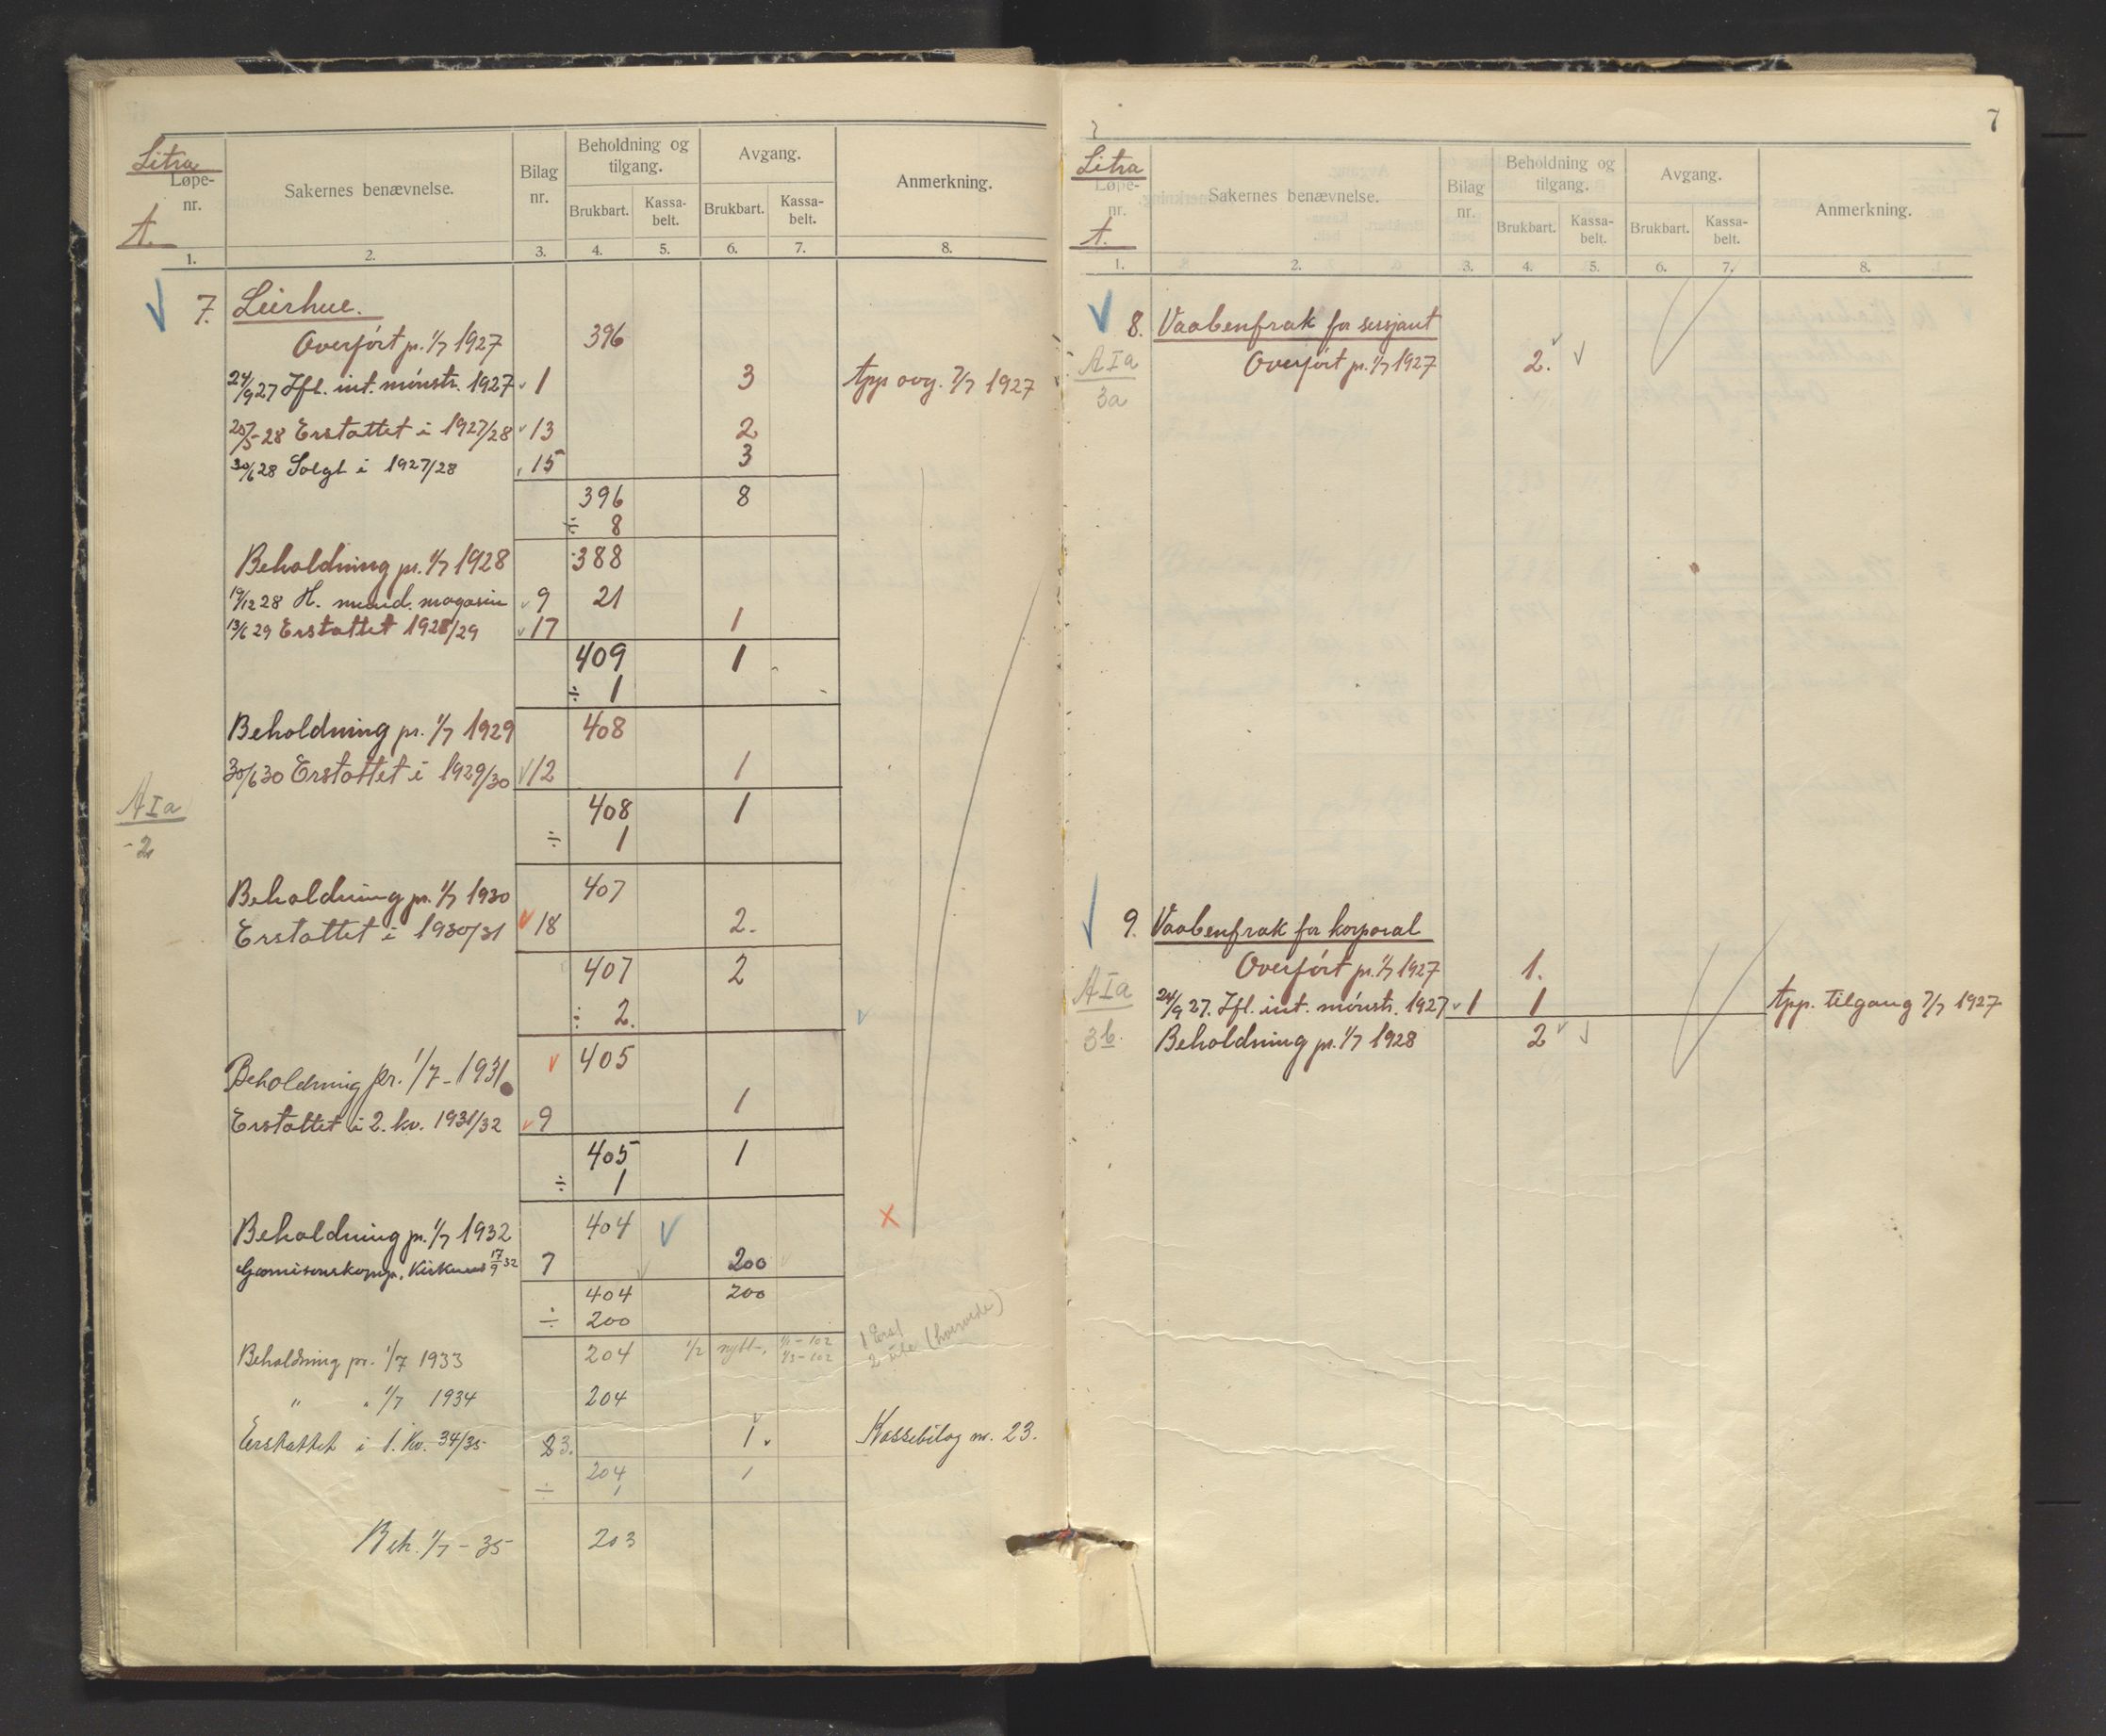 Litra
Løpe-nr. Sakernes benævnelse. Bilag nr. Beholdning og tilgang. Avgang. Anmerkning.
A.
Brukbart. Kassa-belt. Brukbart. Kassa-belt.
1. 2. 3. 4. 5. 6. 7. 8.
7. Leirhue.
Overført pr. 1/7 1927 396
24/9 27 Ifl. int. mønstr. 1927 1 3 App avg. 7/7 1927
25/5-28 Erstattet i 1927/28 13 2
30/6 28 Solgt i 1927/28 15 3
396 8
÷ 8
Beholdning pr. 1/7 1928 388
19/12 28 H. mund. magasin 9 21
13/6 29 Erstattet 1928/29 17 1
409 1
÷ 1
Beholdning pr. 1/7 1929 408
30/6 30 Erstattet i 1929/30 12 1
AIa 408 1
2 ÷ 1
Beholdning pr. 1/7 1930 407
Erstattet i 1930/31 18 2.
407 2
÷ 2.
Beholdning pr. 1/7-1931 405
Erstattet i 2. kv. 1931/32 9 1
405 1
÷ 1
Beholdning pr. 1/7 1932 404
Garnisonskomp. Kirkenes 17/9 32 7 200
404 200
÷ 200
Beholdning pr. 1/7 1933 204 1/2 nytt-, 1/1-102 1/3-102
" " 1/7 1934 204
Erstattet i 1. kv. 34/35 23. 1. Kassebilag nr. 23.
204 1
÷ 1
Beh. 1/7-35 203
7
Litra
Løpe-nr. Sakernes benævnelse. Bilag nr. Beholdning og tilgang. Avgang. Anmerkning.
A.
Brukbart. Kassa-belt. Brukbart. Kassa-belt.
1. 2. 3. 4. 5. 6. 7. 8.
8. Vaabenfrak for sersjant
AIa Overført pr. 1/7 1927 2.
3a
9. Vaabenfrak for korporal
Overført pr. 1/7 1927 1.
AIa 24/9 27. Ifl. int. mønstr. 1927 1 1 App. tilgang 7/7 1927
3b. Beholdning pr. 1/7 1928 2